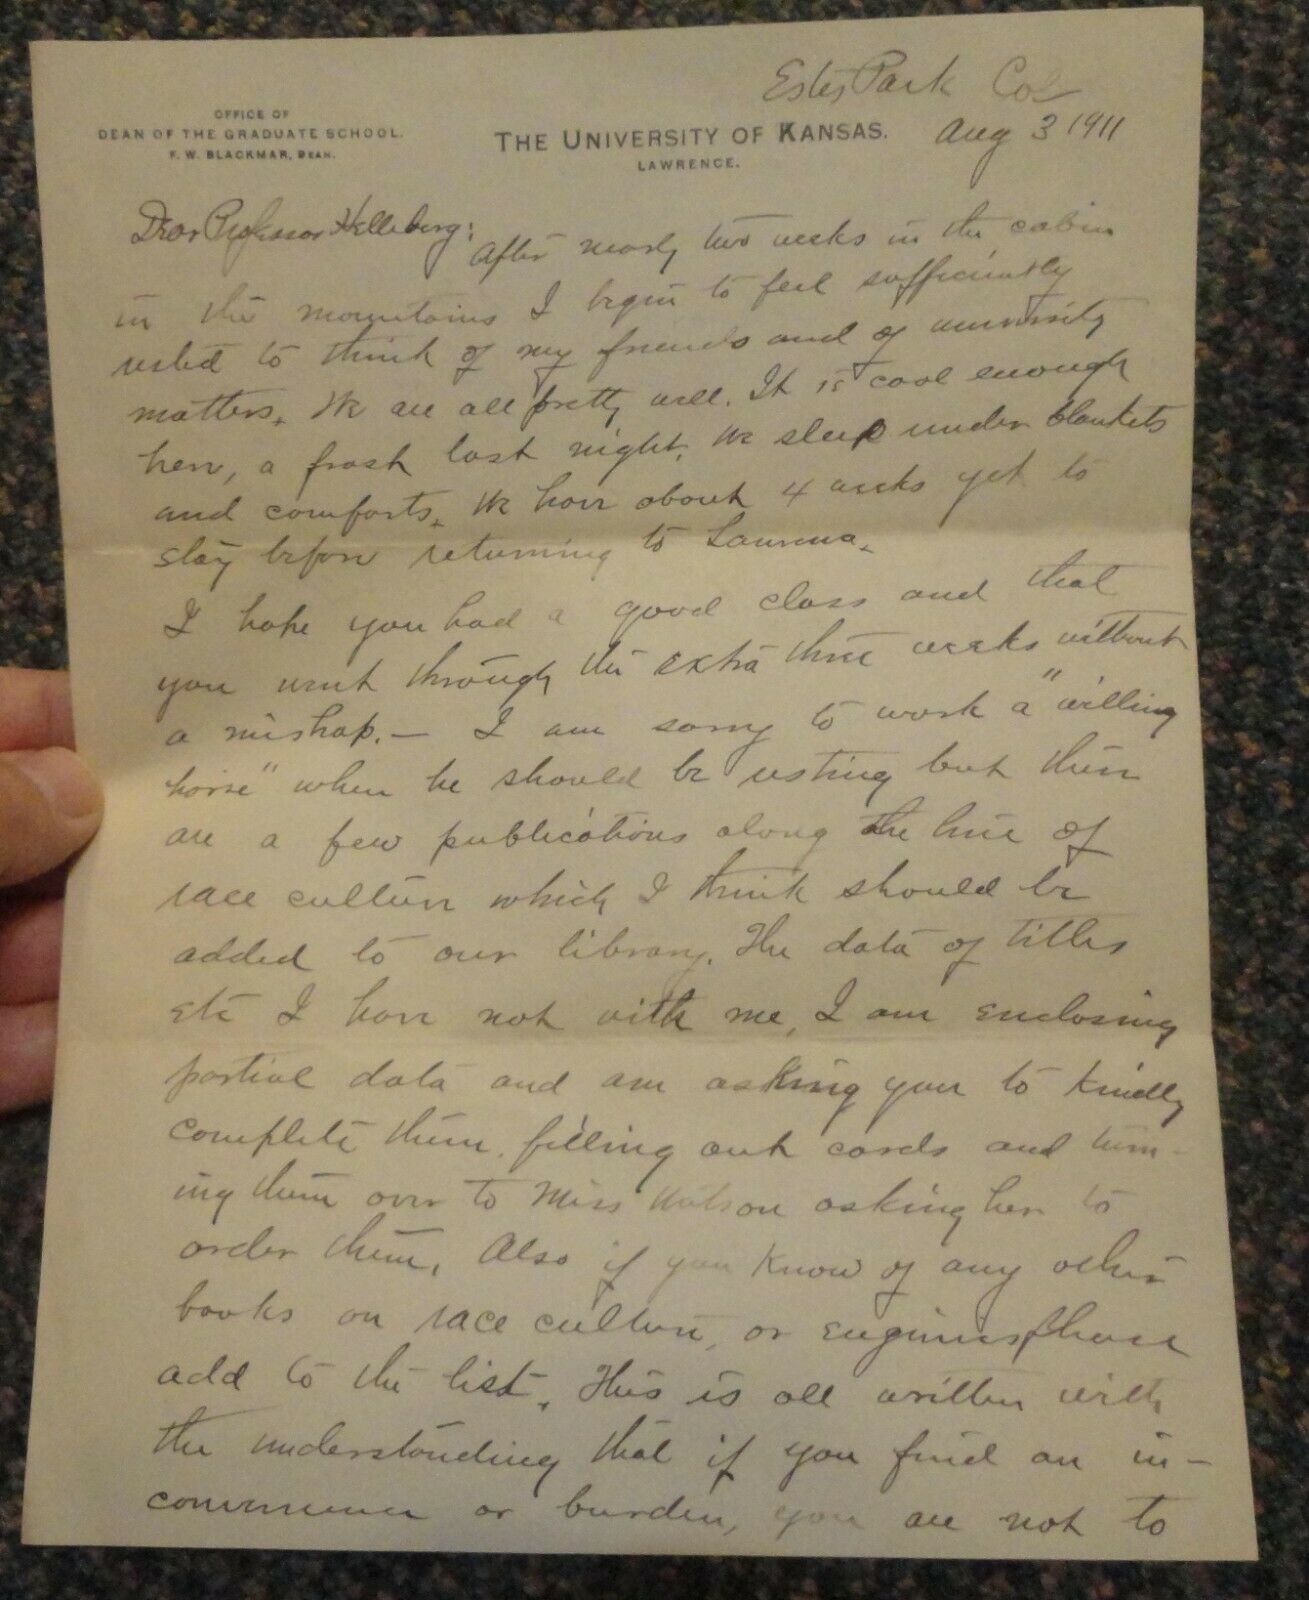 Estes Park Col
OFFICE OF
DEAN OF THE GRADUATE SCHOOL.
F. W. BLACKMAR, DEAN.
THE UNIVERSITY OF KANSAS.
LAWRENCE.
Aug 3 1911
Dear Professor Helleberg:
After nearly two weeks in the cabin
in the mountains I begin to feel sufficiently
rested to think of my friends and of university
matters. We are all pretty well. It is cool enough
here, a frost last night. We sleep under blankets
and comforts. We have about 4 weeks yet to
stay before returning to Lawrence.
I hope you had a good class and that
you went through the extra three weeks without
a mishap. — I am sorry to work a "willing
horse" when he should be resting but there
are a few publications along the line of
race culture which I think should be
added to our library. The data of titles
etc I have not with me, I am enclosing
partial data and am asking you to kindly
complete them, filling out cards and turn-
ing them over to Miss Watson asking her to
order them. Also if you know of any other
books on race culture, or eugenics please
add to the list. This is all written with
the understanding that if you find an in-
convenience or burden, you are not to